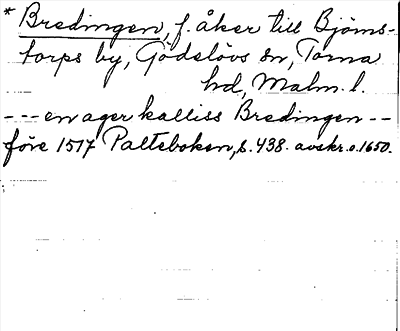 * Bredingen, f. åker till Björns-
torps by, Gödelövs sn, Torna
hd, Malm. l.
--- en ager kalliss Bredingen --
före 1517 Palteboken, s. 438. avskr. o. 1650.